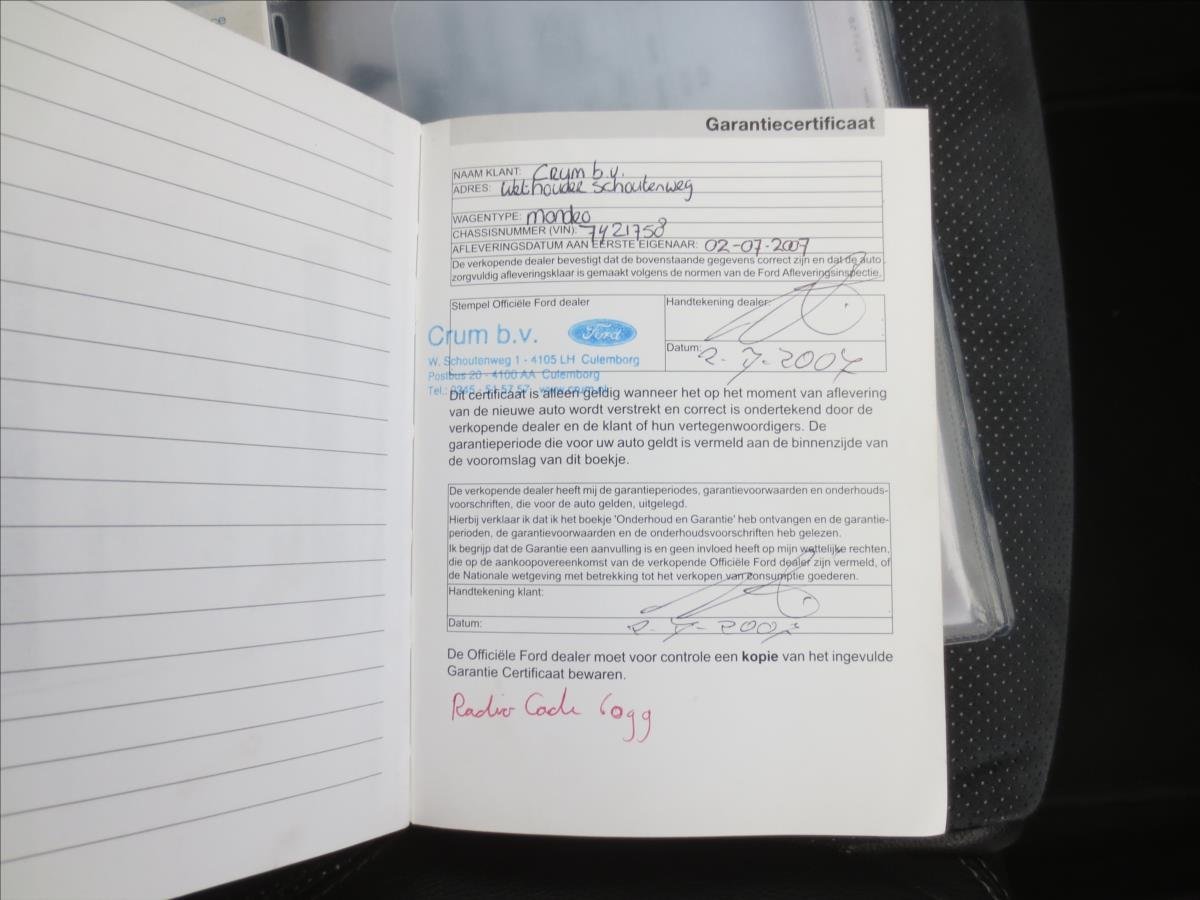 ce
Garantiecertificaat
NAAM KLANT: Crum b.v.
ADRES: Wethouder Schoutenweg
WAGENTYPE: mondeo
CHASSISNUMMER (VIN): 7Y21758
AFLEVERINGSDATUM AAN EERSTE EIGENAAR: 02-07-2007
De verkopende dealer bevestigt dat de bovenstaande gegevens correct zijn en dat de auto
zorgvuldig afleveringsklaar is gemaakt volgens de normen van de Ford Afleveringsinspectie.
Stempel Officiële Ford dealer
Handtekening dealer:
Crum b.v. Ford
W. Schoutenweg 1 - 4105 LH Culemborg
Postbus 20 - 4100 AA Culemborg
Tel.: 0345 - 51 57 57
Datum: 2-7-2007
Dit certificaat is alleen geldig wanneer het op het moment van aflevering
van de nieuwe auto wordt verstrekt en correct is ondertekend door de
verkopende dealer en de klant of hun vertegenwoordigers. De
garantieperiode die voor uw auto geldt is vermeld aan de binnenzijde van
de vooromslag van dit boekje.
De verkopende dealer heeft mij de garantieperiodes, garantievoorwaarden en onderhouds-
voorschriften, die voor de auto gelden, uitgelegd.
Hierbij verklaar ik dat ik het boekje 'Onderhoud en Garantie' heb ontvangen en de garantie-
perioden, de garantievoorwaarden en de onderhoudsvoorschriften heb gelezen.
Ik begrijp dat de Garantie een aanvulling is en geen invloed heeft op mijn wettelijke rechten,
die op de aankoopovereenkomst van de verkopende Officiële Ford dealer zijn vermeld, of
de Nationale wetgeving met betrekking tot het verkopen van consumptie goederen.
Handtekening klant:
Datum: 2-7-2007
De Officiële Ford dealer moet voor controle een kopie van het ingevulde
Garantie Certificaat bewaren.
Radio Code 6099